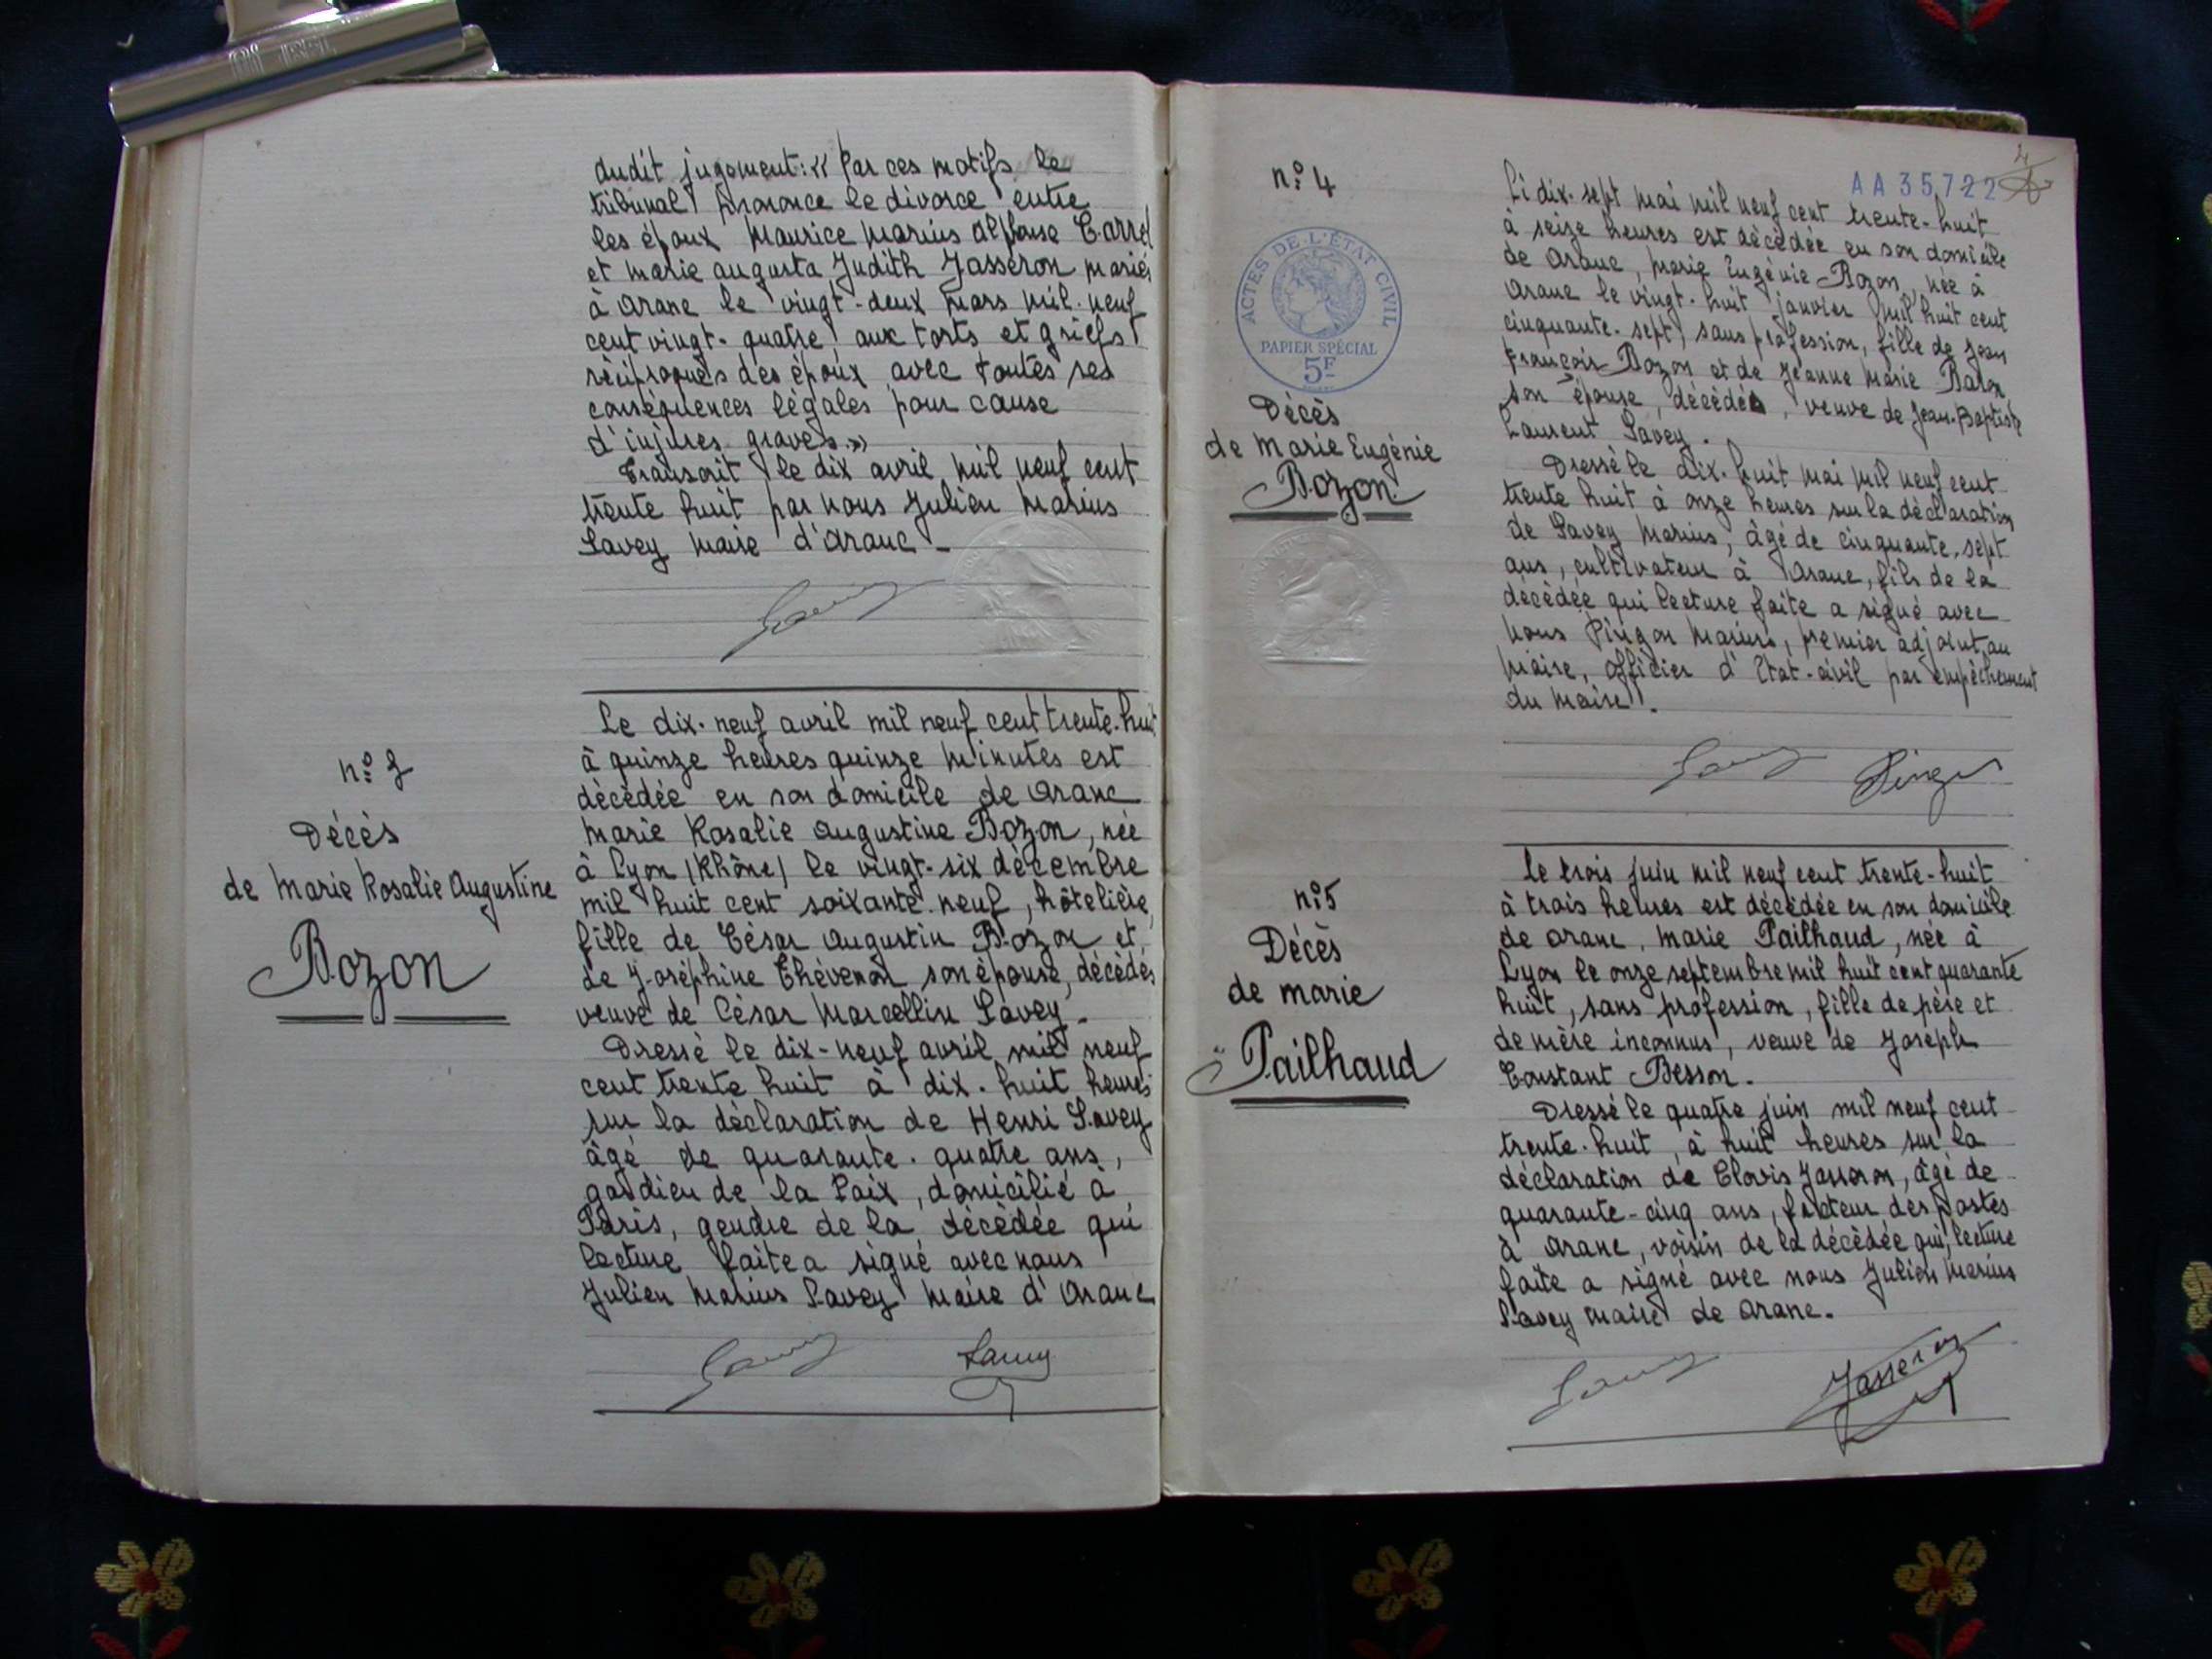 dudit jugement: « Par ces motifs le
tribunal prononce le divorce entre
les époux Maurice Marius Alphonse Carrel
et Marie Augusta Judith Jasseron mariés
à Aranc le vingt-deux mars mil neuf
cent vingt-quatre aux torts et griefs
réciproques des époux avec toutes ses
conséquences légales pour cause
d'injures graves.»
Transcrit le dix avril mil neuf cent
trente huit par nous Julien Marius
Savey maire d'Aranc -
n°: 3
Décès
de Marie Rosalie Augustine
Bozon
Le dix-neuf avril mil neuf cent trente-huit
à quinze heures quinze minutes est
décédée en son domicile de Aranc
Marie Rosalie Augustine Bozon, née
à Lyon (Rhône) le vingt-six décembre
mil huit cent soixante-neuf, hôtelière,
fille de César Augustin Bozon et
de Joséphine Thévenon son épouse, décédés
veuve de César Marcellin Savey -
Dressé le dix-neuf avril mil neuf
cent trente huit à dix-huit heures
sur la déclaration de Henri Savey
âgé de quarante-quatre ans,
gardien de la Paix, domicilié à
Paris, gendre de la décédée qui
lecture faite a signé avec nous
Julien Marius Savey maire d'Aranc
Savey
AA35722
n°: 4
ACTES DE L'ÉTAT CIVIL
PAPIER SPÉCIAL
5F
Décès
de Marie Eugénie
Bozon
Le dix-sept mai mil neuf cent trente-huit
à seize heures est décédée en son domicile
de Aranc, Marie Eugénie Bozon, née à
Aranc le vingt-huit janvier mil huit cent
cinquante-sept, sans profession, fille de Jean
François Bozon et de Jeanne Marie Baron
son épouse, décédés, veuve de Jean-Baptiste
Laurent Savey.
Dressé le dix-huit mai mil neuf cent
trente huit à onze heures sur la déclaration
de Savey Marius, âgé de cinquante-sept
ans, cultivateur à Aranc, fils de la
décédée qui lecture faite a signé avec
nous Pingon Marius, premier adjoint au
Maire, officier d'Etat-civil par empêchement
du maire.
n°: 5
Décès
de Marie
Pailhaud
Le trois juin mil neuf cent trente-huit
à trois heures est décédée en son domicile
de Aranc, Marie Pailhaud, née à
Lyon le onze septembre mil huit cent quarante
huit, sans profession, fille de père et
de mère inconnus, veuve de Joseph
Constant Besson.
Dressé le quatre juin mil neuf cent
trente-huit, à huit heures sur la
déclaration de Clovis Jasseron, âgé de
quarante-cinq ans, facteur des postes
à Aranc, voisin de la décédée qui, lecture
faite a signé avec nous Julien Marius
Savey maire de Aranc.
Jasseron